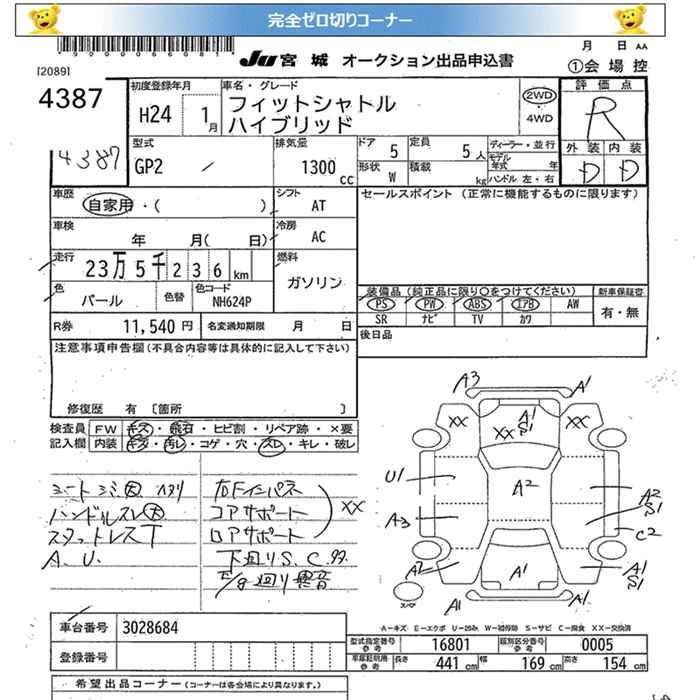 完全ゼロ切りコーナー
[2089]
JU 宮城 オークション出品申込書
月 日 AA
①会場控
4387
初度登録年月
H24 1月
車名・グレード
フィットシャトル
ハイブリッド
2WD
4WD
評価点
R
4387
型式
GP2
排気量
1300cc
ドア 5
定員 5人
ディーラー・並行
モデル年式 年
形状 W
積載 kg
ハンドル 左・右
外装 内装
D D
車歴
自家用・( )
シフト
AT
セールスポイント (正常に機能するものに限ります)
車検
年 月( 日)
冷房
AC
走行
23万5千236km
燃料
ガソリン
色
パール
色替
色コード
NH624P
装備品(純正品に限り○をつけてください)
新車保証書
PS PW ABS エアB AW
有・無
SR ナビ TV カワ
R券 11,540円
名変通知期限 月 日
後日品
注意事項申告欄(不具合内容等は具体的に記入して下さい)
修復歴 有 [箇所 ]
検査員 FW キズ・飛石・ヒビ割・リペア跡・×要
記入欄 内装 キズ・汚レ・コゲ・穴・スレ・キレ・破レ
シートシミ大 ヘタリ
ハンドルスレ大
スタットレスT
A.U.
右Fインパネ
コアサポート
ロアサポート
XX
下廻りS.C.多
E/g廻り異音
A3 A1
XX A1 XX
XX S1
U1 A2 A2
S1
A3 C2
A2 A1 A1
S1
A1 A1
スペア
A-キズ E-エクボ U-凹み W-補修跡 S-サビ C-腐食 XX-交換済
車台番号 3028684
登録番号
型式指定番号 参考 16801
類別区分番号 参考 0005
車庫証明用 参考 長さ 441 cm 幅 169 cm 高さ 154 cm
希望出品コーナー(コーナーは各会場により異なります)